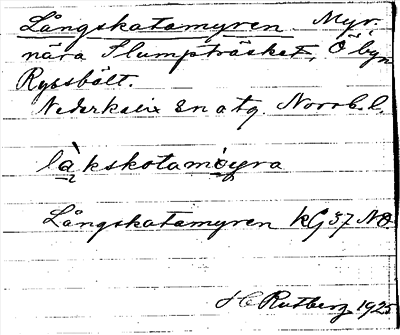 Långskatamyren. Myr.
nära Slumpträsket, Ö byn
Ryssbält.
Nederkalix sn o tg. Norrb. l.
làkskotamöyra
Långskatamyren KG 37 NO.
HC Rutberg 1925